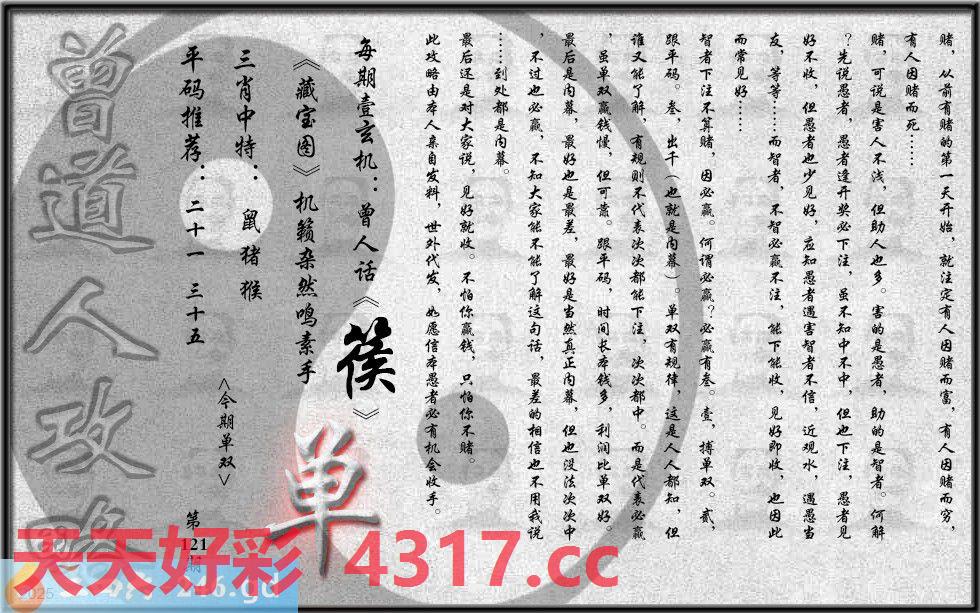 赌，从前有赌的第一天开始，就注定有人因赌而富，有人因赌而穷，
有人因赌而死……
赌，可说是害人不浅，但助人也多。害的是愚者，助的是智者。何解
？先说愚者，愚者逢开奖必下注，虽不知中不中，但也下注，愚者见
好不收，但愚者也少见好，应知愚者遇害智者不信，近观水，遇愚当
友，等等……而智者，不智必赢不注，能下能收，见好即收，也因此
而常见好……
智者下注不算赌，因必赢。何谓必赢？必赢有叁。壹，搏单双。贰，
跟平码。叁，出千（也就是内幕）。单双有规律，这是人人都知，但
谁又能了解，有规则不代表次次都能下注，次次都中。而是代表必赢
，虽单双赢钱慢，但可靠。跟平码，时间长本钱多，利润比单双好。
最后是内幕，最好也是最差，最好是当然真正内幕，但也没法次次中
，不过也必赢，不知大家能不能了解这句话，最差的相信也不用我说
……到处都是内幕。
最后还是对大家说，见好就收。不怕你赢钱，只怕你不赌。
此攻略由本人亲自发料，世外代发，如愿信本愚者必有机会收手。
每期壹玄机：曾人话《篌》
《藏宝图》机籁杂然鸣素手
三肖中特：鼠猪猴
平码推荐：二十一 三十五
<今期单双>
单
第
121
期
曾道人攻略
天天好彩 4317.cc
2025